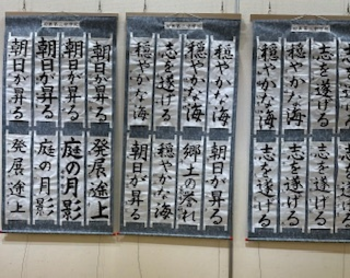 朝日が昇る
朝日が昇る
朝日が昇る
朝日が昇る
発展途上
庭の月影
庭の月影
発展途上
穏やかな海
穏やかな海
志を遂げる
穏やかな海
朝日が昇る
郷土の誉れ
穏やかな海
朝日が昇る
志を遂げる
志を遂げる
穏やかな海
志を遂げる
志を遂げる
志を遂げる